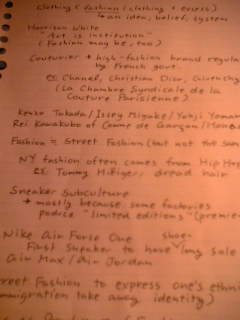 Clothing ( fashion (clothing + excess)
↳ an idea, belief, system
Harrison White
"Art is institution"
(Fashion may be, too)
Couturier + high-fashion brand regula
by French govt.
ex. Chanel, Christian Dior, Givenchy
(La Chambre Syndicale de la
Couture Parisienne)
Kenzo Takada/Issey Miyake/Yohji Yamam
Rei Kawakubo of Comme de Garçon/Hanae
Fashion = Street Fashion (but not the sam
NY fashion often comes from Hip Hop
ex. Tommy Hilfiger, dread hair
Sneaker Subculture
→ mostly because some factories
produce "limited editions" (premier
Nike Air Force One
First Sneaker to have long sale
shoe-
Air Max/Air Jordan
reet Fashion to express one's ethni
mmigration take away identity)